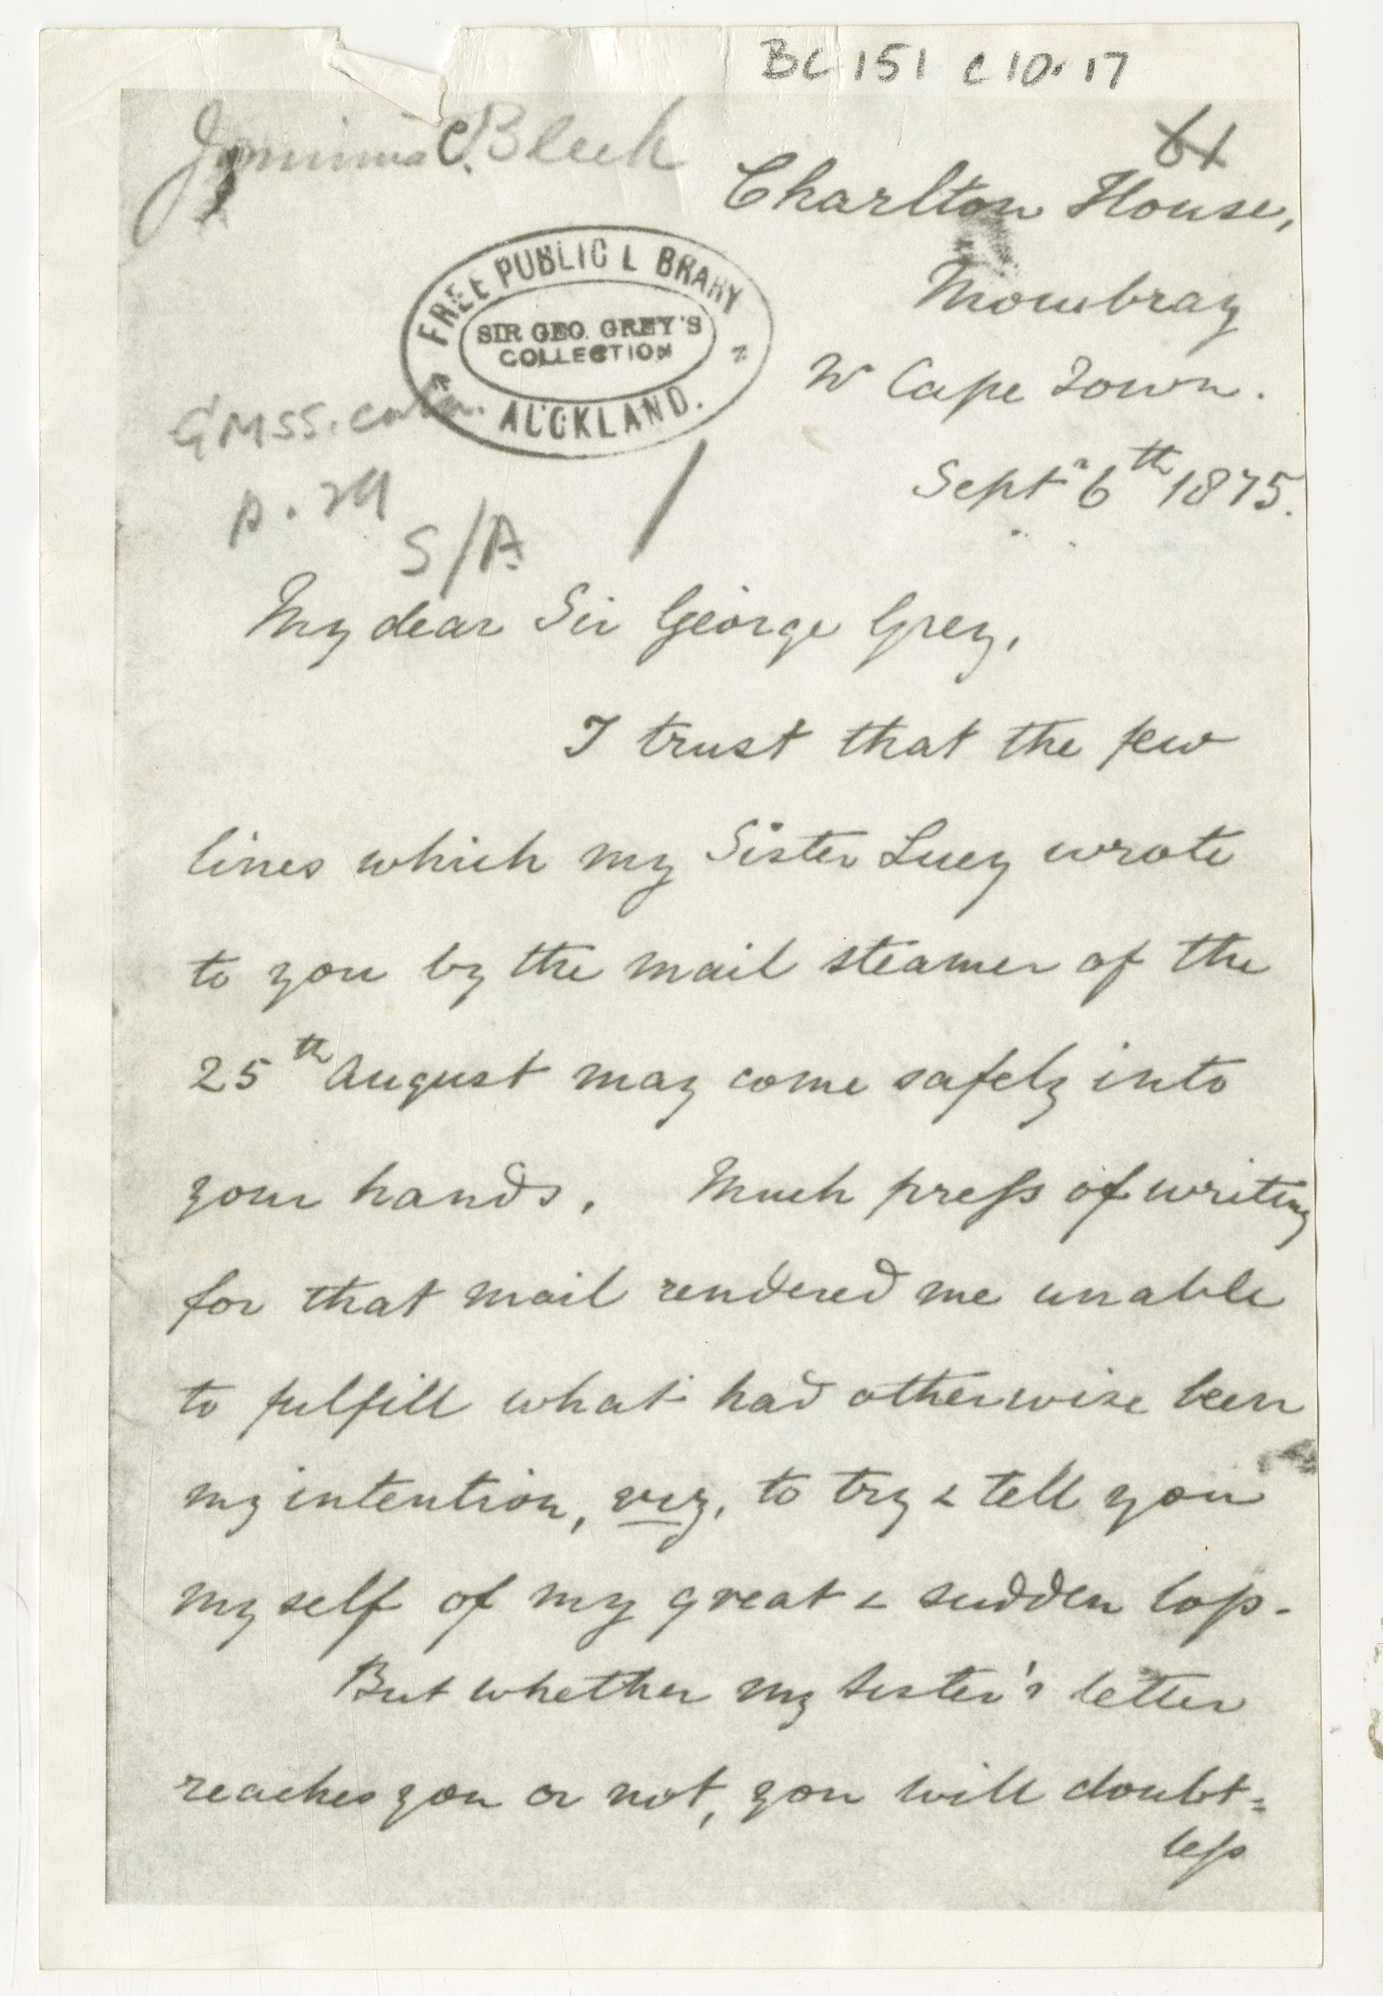 BC 151 C10.17
Jemima C. Bleek
61
Charlton House,
Mowbray
Nr Cape Town.
Septr 6th 1875.
FREE PUBLIC LIBRARY
SIR GEO. GREY'S
COLLECTION
AUCKLAND.
GMSS.
p.
S/A
My dear Sir George Grey,
I trust that the few
lines which my Sister Lucy wrote
to you by the mail steamer of the
25th August may come safely into
your hands. Much press of writing
for that mail rendered me unable
to fulfill what had otherwise been
my intention, viz, to try & tell you
myself of my great & sudden loss.
But whether my sister's letter
reaches you or not, you will doubt=
less